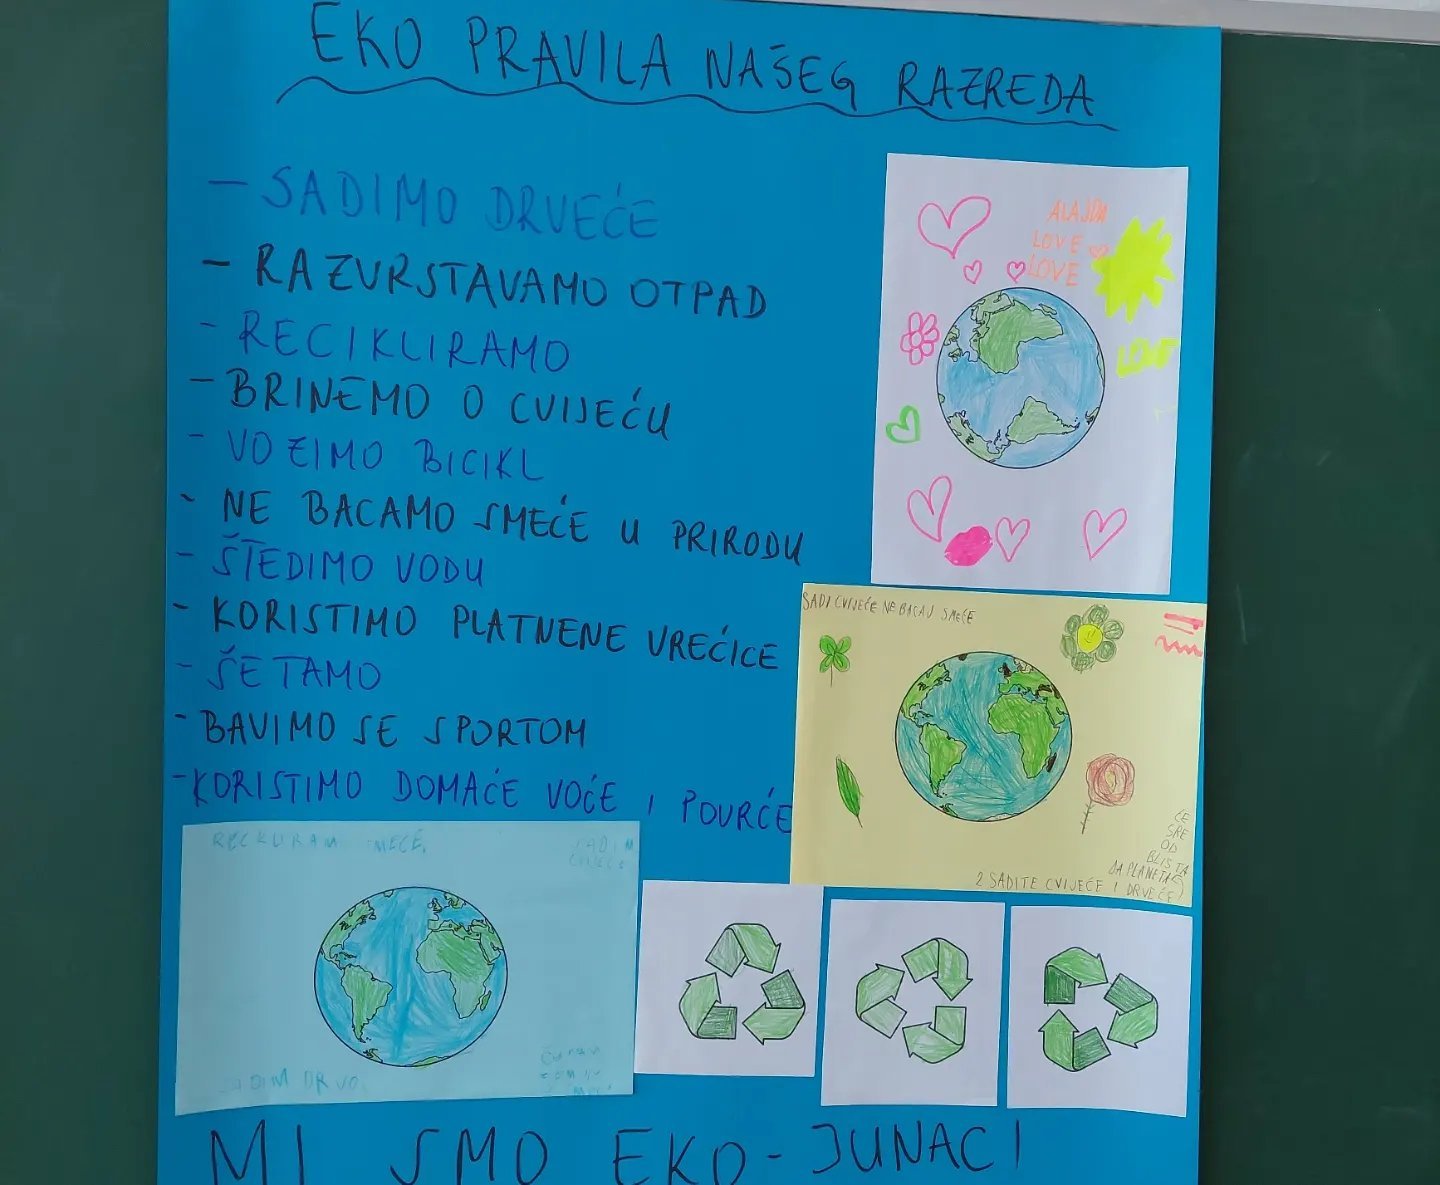 EKO PRAVILA NAŠEG RAZREDA
- SADIMO DRVEĆE
- RAZVRSTAVAMO OTPAD
- RECIKLIRAMO
- BRINEMO O CVIJEĆU
- VOZIMO BICIKL
- NE BACAMO SMEĆE U PRIRODU
- ŠTEDIMO VODU
- KORISTIMO PLATNENE VREĆICE
- ŠETAMO
- BAVIMO SE SPORTOM
- KORISTIMO DOMAĆE VOĆE I POVRĆE
ALAJDA
LOVE
LOVE
LOVE
SADI CVIJEĆE NE BACAJ SMEĆE
ĆE
SRE
OD
BLISTA
2 SADITE CVIJEĆE I DRVEĆE
SADIM
DRVO
MI SMO EKO-JUNACI